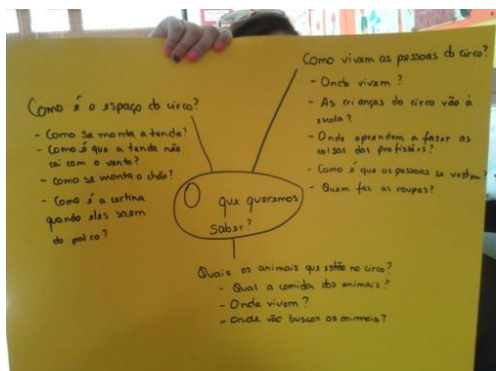 Como é o espaço do circo?
- Como se monta a tenda?
- Como é que a tenda não
cai com o vento?
- Como se monta o chão?
- Como é a cortina
quando eles saem
do palco?
Como vivam as pessoas do circo?
- Onde vivem?
- As crianças do circo vão à
escola?
- Onde aprendem a fazer as
coisas das profissões?
- Como é que as pessoas se vestem?
- Quem faz as roupas?
O que queremos
saber?
Quais os animais que estão no circo?
- Qual a comida dos animais?
- Onde vivem?
- Onde vão buscar os animais?